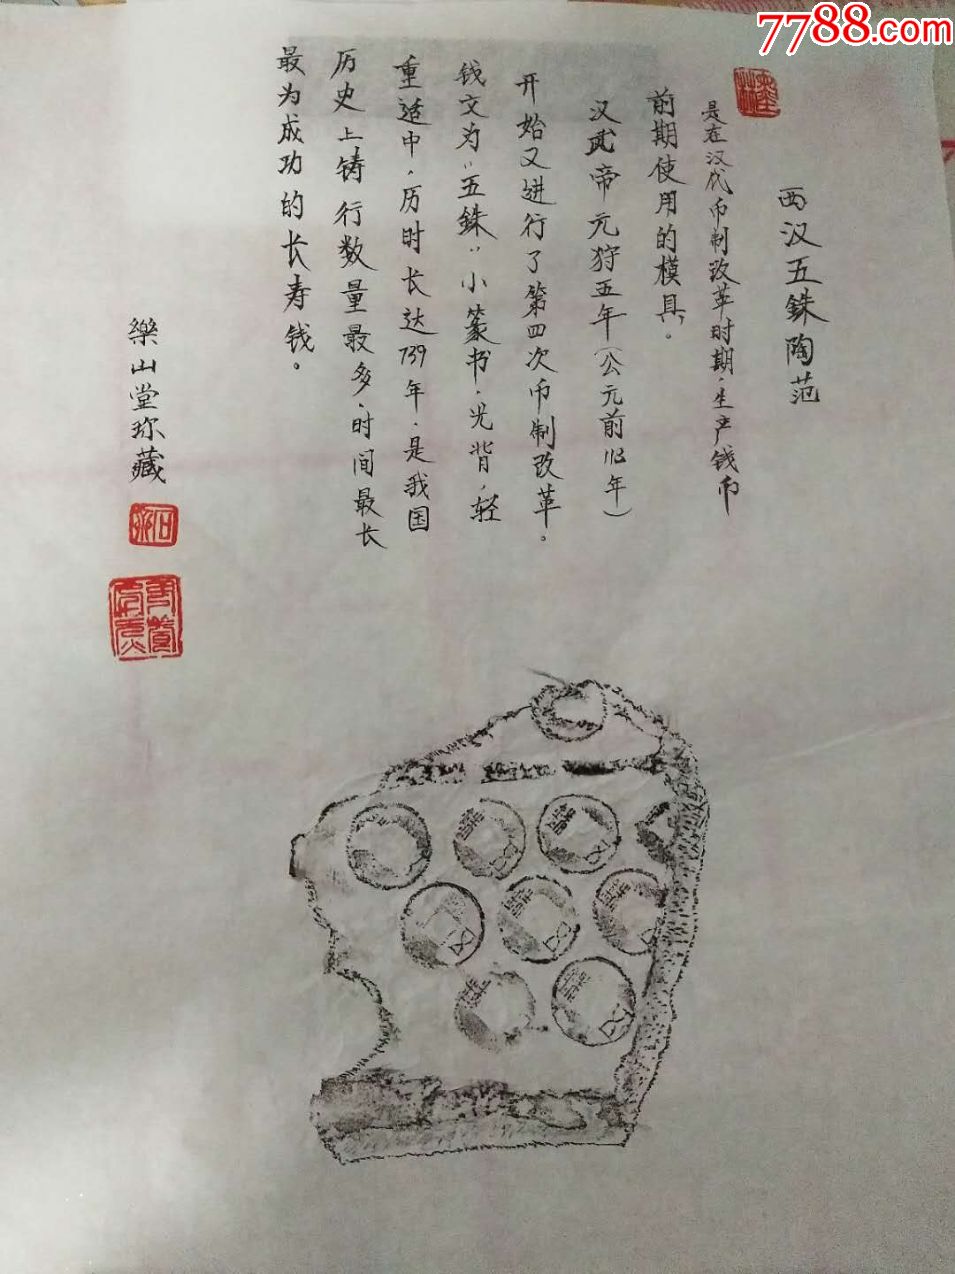 7788.com
西汉五銖陶范
是在汉代币制改革时期，生产钱币
前期使用的模具。
汉武帝元狩五年（公元前118年）
开始又进行了第四次币制改革。
钱文为“五銖”小篆书，光背，轻
重适中，历时长达739年，是我国
历史上铸行数量最多，时间最长
最为成功的长寿钱。
樂山堂珎藏
五銖